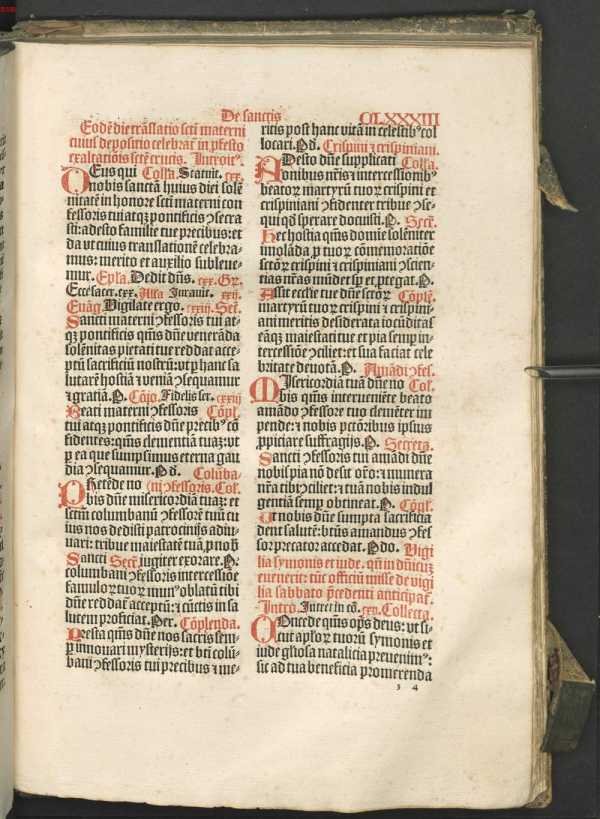 De sanctis
CLXXXIII
Eodē die trāslatio scti materni
cuius depositio celebrat̄ in ꝓfesto
exaltatiōis scte crucis. Introie⁹.
DEus qui Coll̄a. Statuit. xx.
nobis sanctā huius diei solē
nitatē in honore scti materni con
fessoris tui atqꝫ pontificis ↄ̄secra
sti: adesto familie tue precibus: et
da vt cuius translationē celebra-
mus: merito et auxilio subleue-
mur. Ep̄la. Dedit dn̄s. cxx. Gr̄.
Ecce sacer. cxx. Alla Iurauit. xxij
Euāg. Vigilate ergo. cxxiij. Sec̄.
Sancti materni ↄ̄fessoris tui at-
qꝫ pontificis qm̄s dn̄e venerāda
solēnitas pietati tue reddat acce-
ptū sacrificiū nostrū: vt ꝑ hanc sa
lutarē hostiā ⁊ veniā ↄ̄sequamur
⁊ gratiā. P. Cōio. Fidelis ser. cxxij
Beati materni ↄ̄fessoris Cōpl.
tui atqꝫ pontificis dn̄e precib⁹ cō
fidentes: qm̄s clementiā tuaꝫ: vt
ꝑ ea que sumpsimus eterna gau
dia ↄ̄sequamur. P d. Colūba-
PRetēde no (ni ↄ̄fessoris. Col.
bis dn̄e misericordiā tuaꝫ: et
sctū columbanū ↄ̄fessorē tuū cu
ius nos dedisti patrocinijs adiu-
uari: tribue maiestatē tuā ꝓ nob̄
Sancti Secr̄. iugiter exorare. P:
columbani ↄ̄fessoris intercessiōe
famuloꝝ tuoꝝ mun⁹ oblatū tibi
dn̄e reddat̄ acceptū: ⁊ cūctis in sa
lutem proficiat. Per. Cōplenda.
Presta qm̄s dn̄e nos sacris sem-
ꝑ innouari mysterijs: et bti colū-
bani ↄ̄fessoris tui precibus ⁊ me-
ritis post hanc vitā in celestib⁹ col
locari. P d. Crispini ⁊ crispiniani.
ADesto dn̄e supplicati Coll̄a.
onibus nr̄is ⁊ intercessionib⁹
beatoꝝ martyrū tuoꝝ crispini et
crispiniani ↄ̄fidenter tribue ↄ̄se-
qui qd̄ sperare docuisti. P. Secr̄.
Hec hostia qm̄s domīe solēniter
imolāda ꝓ tuoꝝ cōmemoratiōe
sctōꝝ crispini ⁊ crispiniani ↄ̄scien-
tias nr̄as mūdet sꝑ et ꝓtegat. P.
Assit ecclie tue dn̄e sctōꝝ Cōplē.
martyrū tuoꝝ crispini ⁊ crispini-
ani meritis desiderata iocūditas
eāqꝫ maiestati tue et pia semꝑ in-
tercessiōe ↄ̄ciliet: et sua faciat cele
britate deuotā. P. Amādi ↄ̄fes.
MIsericordiā tuā dn̄e no Col.
bis qm̄s interueniēte beato
amādo ↄ̄fessore tuo clemēter im
pende: ⁊ nobis pctōribus ipsius
ꝓpiciare suffragijs. P. Secreta.
Sancti ↄ̄fessoris tui amādi dn̄e
nobis pia nō desit or̄o: ⁊ munera
nr̄a tibi ↄ̄ciliet: ⁊ tuā nobis indul
gentiā semꝑ obtineat. P. Cōpl.
Ut nobis dn̄e sumpta sacrificia
dent salutē: btūs amandus ↄ̄fes
sor precator accedat. P do. Vigi
lia symonis et iude. qn̄ in dn̄icūꝫ
euenerit: tūc officiū misse de vigi
lia sabbato ꝑcedenti anticipat̄.
Intro. Intret in cō. cxv. Collecta.
COncede qm̄s oꝑs deus: vt si-
cut aplōꝝ tuorū symonis et
iude gl̄iosa natalicia preuenim⁹:
sic ad tua beneficia promerenda
3 4